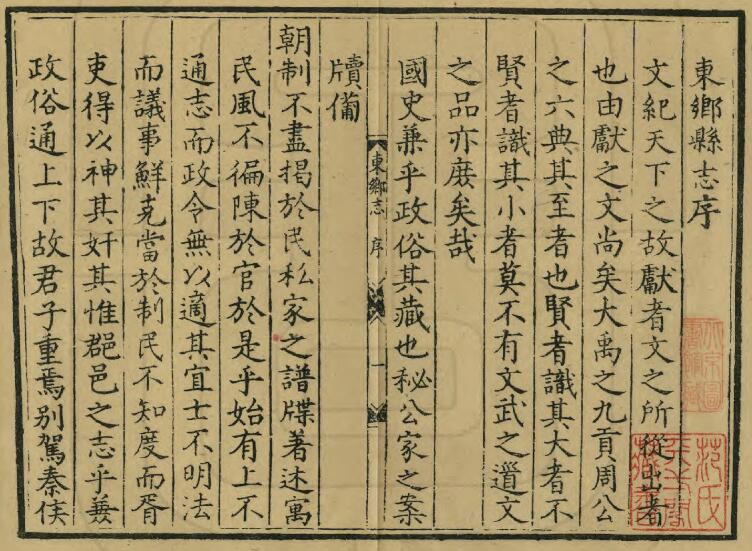 東鄉縣志序
文紀天下之故獻者文之所從出者
也由獻之文尚矣大禹之九貢周公
之六典其至者也賢者識其大者不
賢者識其小者莫不有文武之道文
之品亦廣矣哉
國史兼乎政俗其藏也秘公家之案
牘備
東鄉志 序 一
朝制不盡揭於民私家之譜牒著述寓
民風不徧陳於官於是乎始有上不
通志而政令無以適其宜士不明法
而議事鮮克當於制民不知度而胥
吏得以神其奸其惟郡邑之志乎兼
政俗通上下故君子重焉别駕秦侯